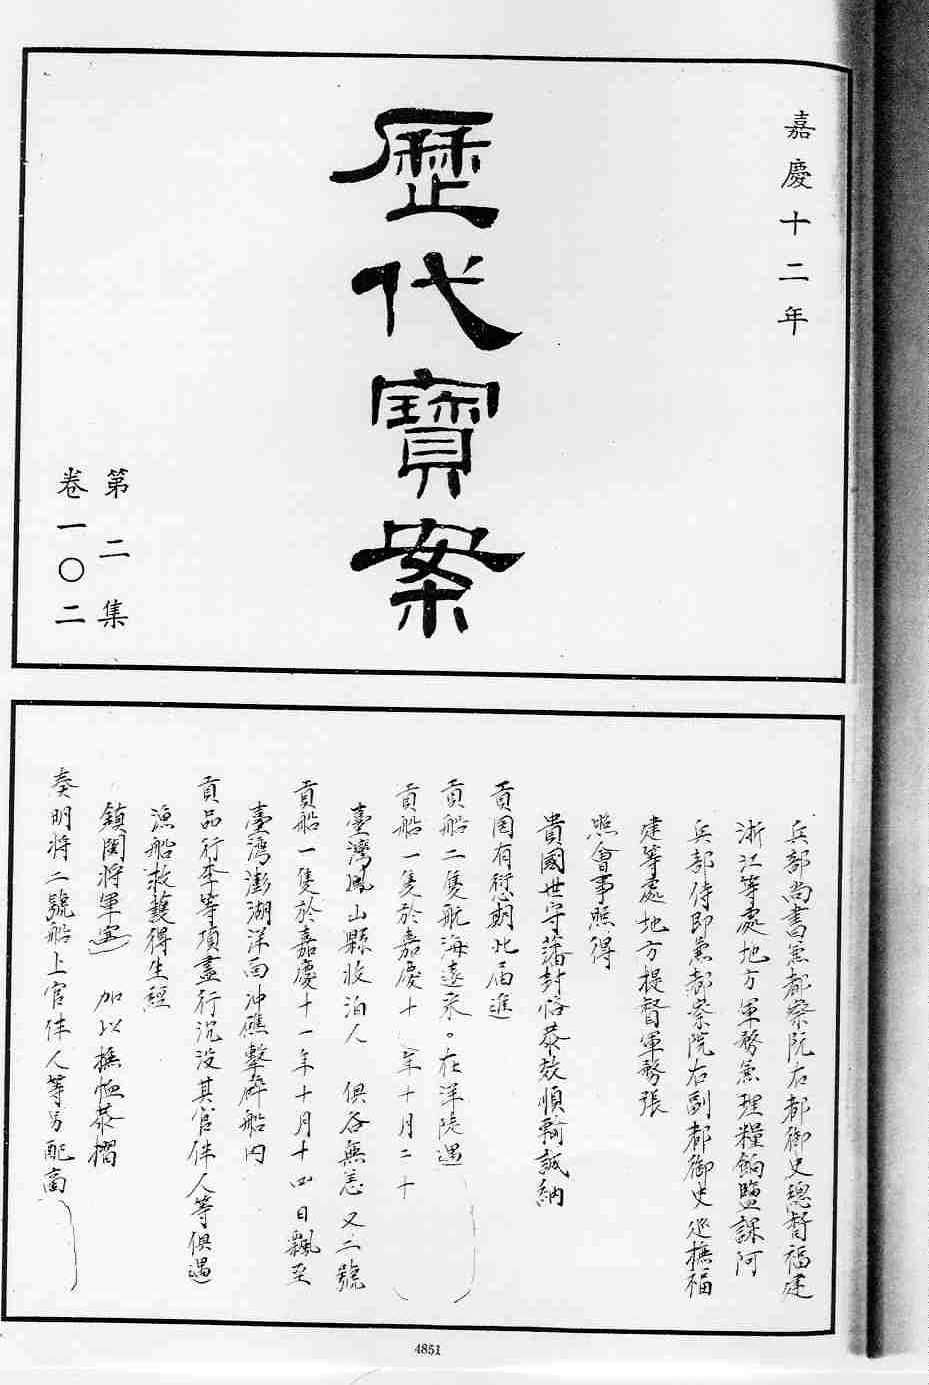 嘉慶十二年
歷代寶案
第二集
卷一〇二
兵部尚書兼都察院右都御史總督福建
浙江等處地方軍務兼理糧餉鹽課阿
兵部侍郎兼都察院右副都御史巡撫福
建等處地方提督軍務張
照會事照得
貴國世守藩封恪恭效順輸誠納
貢罔有愆期此届進
貢船二隻航海遠來。在洋陡遇
貢船一隻於嘉慶十 年十月二十
臺灣鳳山縣收泊人 俱各無恙又二號
貢船一隻於嘉慶十一年十月十四日飄至
臺灣澎湖洋面冲礁擊碎船内
貢品行李等項盡行沉没其官伴人等俱遇
漁船救護得生經
鎮閩將軍 加以撫恤恭摺
奏明將二號船上官伴人等另配商
4851